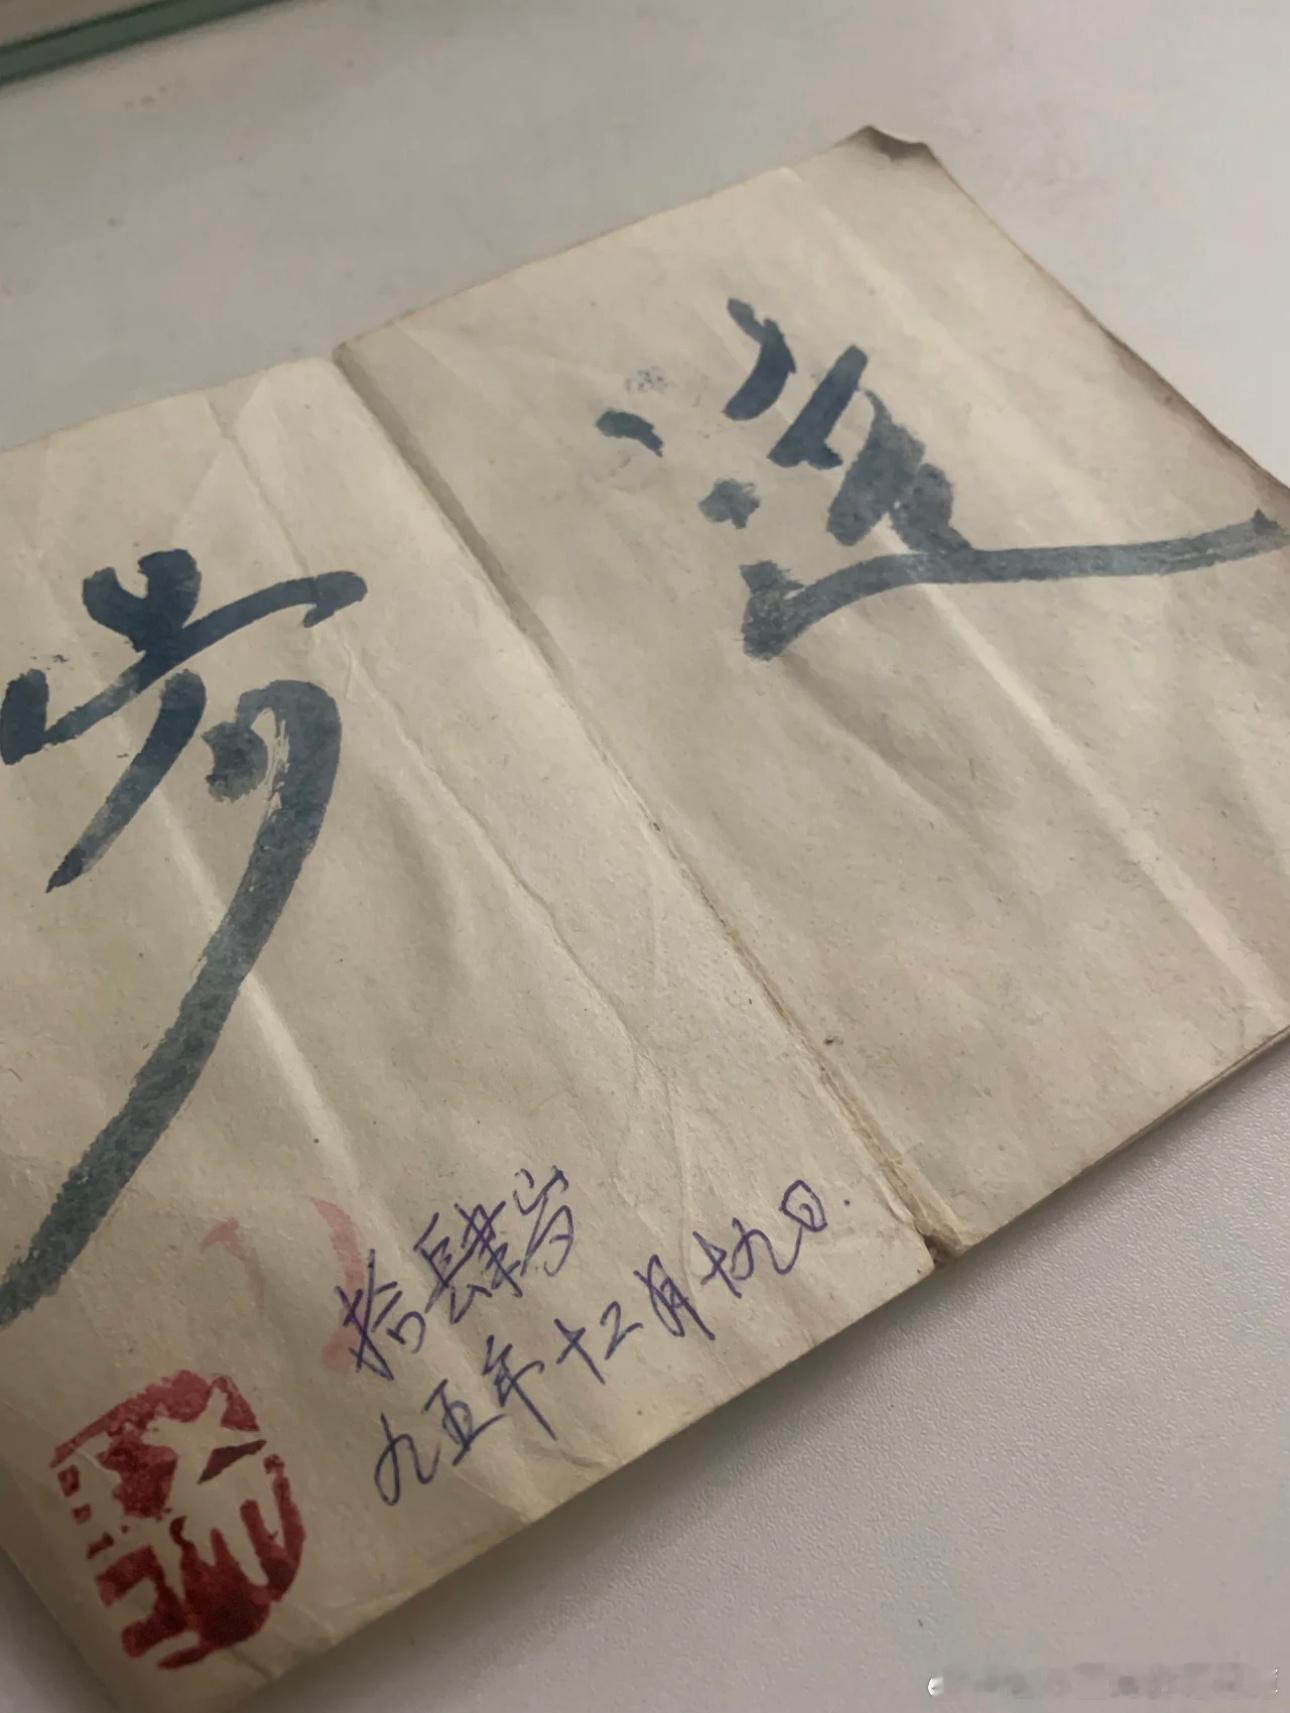 進步
拾肆岁
九五年十二月十九日.